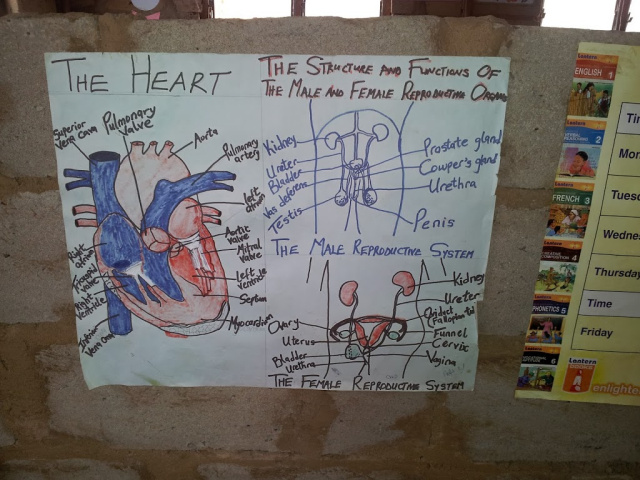 THE HEART
Superior
Vena Cava
Pulmonary
Valve
Aorta
Pulmonary
artery
left
atrium
Aortic
valve
Mitral
Valve
Left
Ventricle
Septum
Myocardium
Right
atrium
Tricuspid
valve
Right
ventricle
Inferior
Vena Cava
THE STRUCTURE AND FUNCTIONS OF
THE MALE AND FEMALE REPRODUCTIVE ORGANS
Kidney
Ureter
Bladder
Vas deferens
Testis
Prostate gland
Cowper's gland
Urethra
Penis
THE MALE REPRODUCTIVE SYSTEM
Kidney
Ureter
Oviduct
Funnel
Cervix
Vagina
Ovary
Uterus
Bladder
Urethra
THE FEMALE REPRODUCTIVE SYSTEM
Lantern
ENGLISH 1
2
FRENCH 3
COMPOSITION 4
PHONETICS 5
6
Tim
Mon
Tuesd
Wednes
Thursday
Time
Friday
Lantern
enlighte